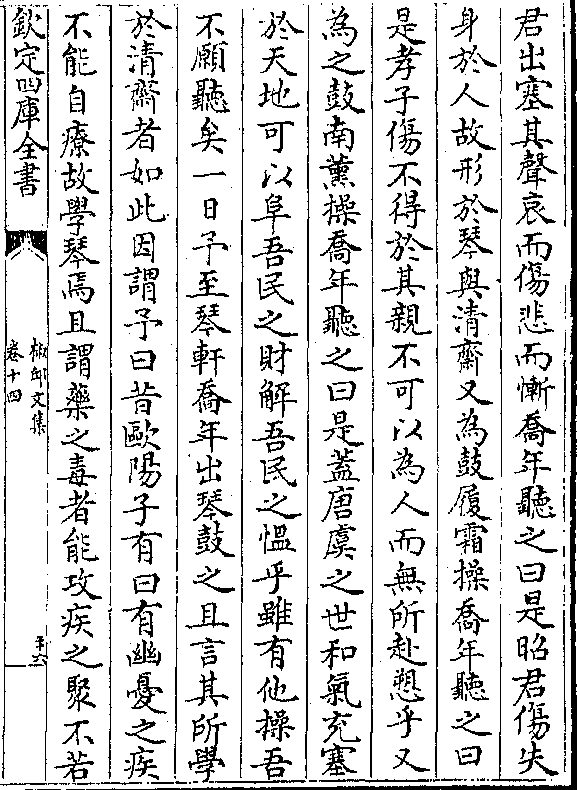 君出塞其聲哀而傷悲而慚喬年聽之曰是昭君傷失
身於人故形於琴與清齋又為鼓履霜操喬年聽之曰
是孝子傷不得於其親不可以為人而無所赴愬乎又
為之鼓南薰操喬年聽之曰是蓋唐虞之世和氣充塞
於天地可以阜吾民之財解吾民之愠乎雖有他操吾
不願聽矣一日予至琴軒喬年出琴鼓之且言其所學
於清齋者如此因謂予曰昔歐陽子有曰有幽憂之疾
不能自療故學琴焉且謂藥之毒者能攻疾之聚不若
欽定四庫全書
椒邱文集
卷十四